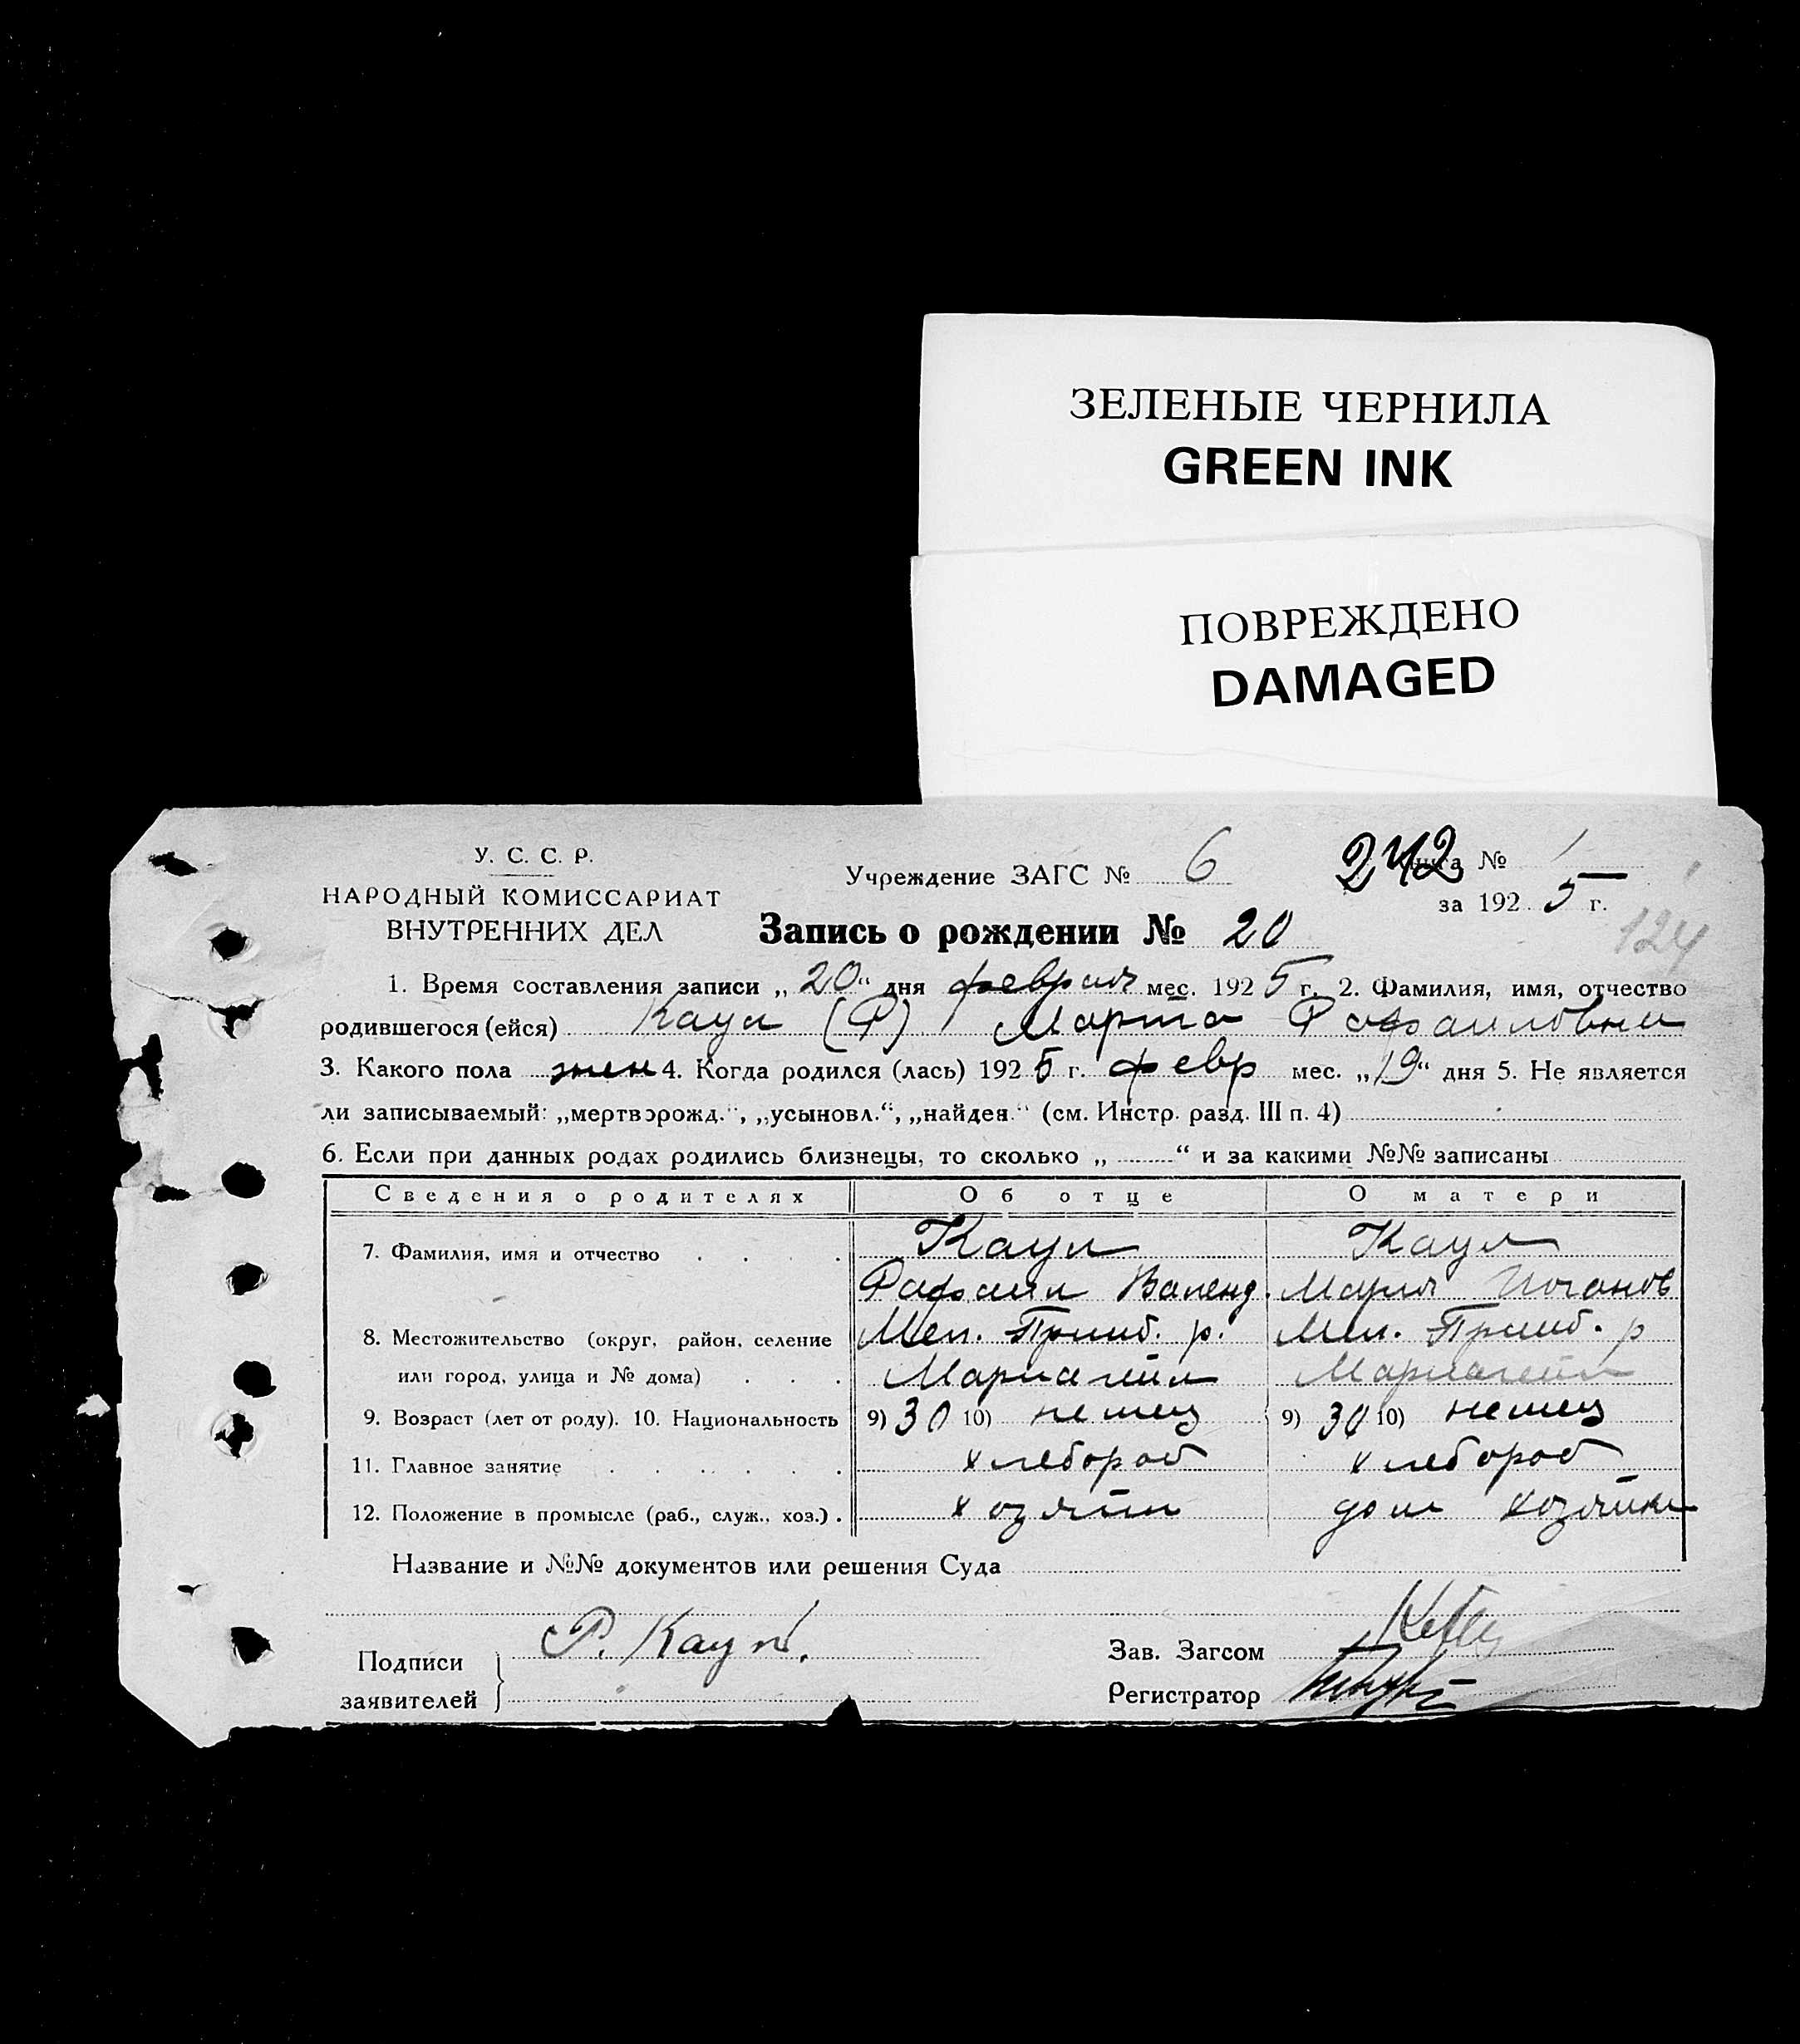 ЗЕЛЕНЫЕ ЧЕРНИЛА
GREEN INK
ПОВРЕЖДЕНО
DAMAGED
У. С. С. Р.
НАРОДНЫЙ КОМИССАРИАТ
ВНУТРЕННИХ ДЕЛ
Учреждение ЗАГС № 6
242 Книга № 1
за 1925 г.
124
Запись о рождении № 20
1. Время составления записи „20“ дня февраля мес. 1925 г. 2. Фамилия, имя, отчество
родившегося (ейся) Каул (Р) Марта Рафаиловна
3. Какого пола жен 4. Когда родился (лась) 1925 г. февр мес. „19“ дня 5. Не является
ли записываемый: „мертворожд.“, „усыновл.“, „найден.“ (см. Инстр. разд. III п. 4)
6. Если при данных родах родились близнецы, то сколько „ “ и за какими №№ записаны
Сведения о родителях Об отце О матери
7. Фамилия, имя и отчество Каул Каул
Рафаил Валенд. Мария Иоганов
8. Местожительство (округ, район, селение Мел. Пришб. р. Мел. Пришб. р
или город, улица и № дома) Мариагейл Мариагейл
9. Возраст (лет от роду). 10. Национальность 9) 30 10) немец 9) 30 10) немец
11. Главное занятие хлебороб хлебороб
12. Положение в промысле (раб., служ., хоз.) хозяин дом хозяйка
Название и №№ документов или решения Суда
Подписи Р. Каул. Зав. Загсом
заявителей Регистратор